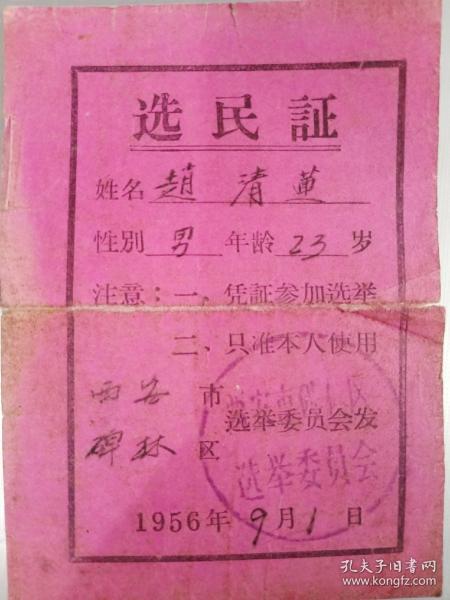 选民証
姓名 趙清
性別 男 年龄 23 岁
注意：一、凭証参加选举
二、只准本人使用
西安市
碑林区
选举委员会发
选举委员会
1956年9月1日
孔夫子旧书网
www.kongfz.com